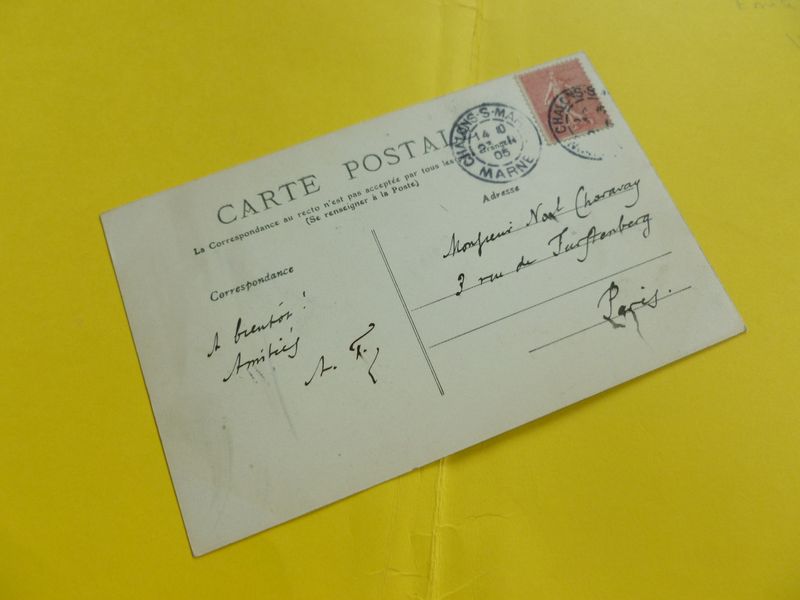 CARTE POSTALE
La Correspondance au recto n'est pas acceptée par tous les
(Se renseigner à la Poste)
CHALONS-S-MARNE
14
05
MARNE
CHALONS-S-
Correspondance
Adresse
A bientôt !
Amitiés
A. F.
Monsieur Noël Charavay
3 rue de Furstenberg
Paris.